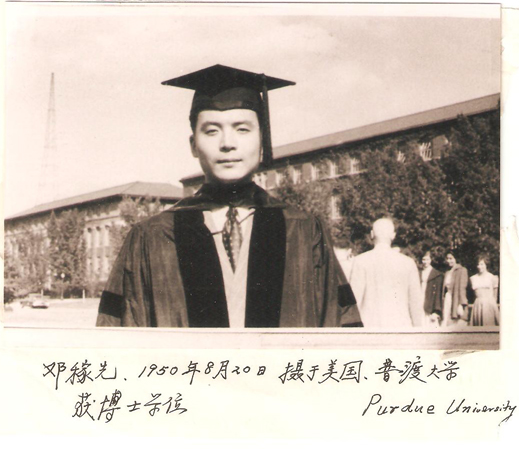 邓稼先、1950年8月20日 摄于美国、普渡大学
获博士学位 Purdue University